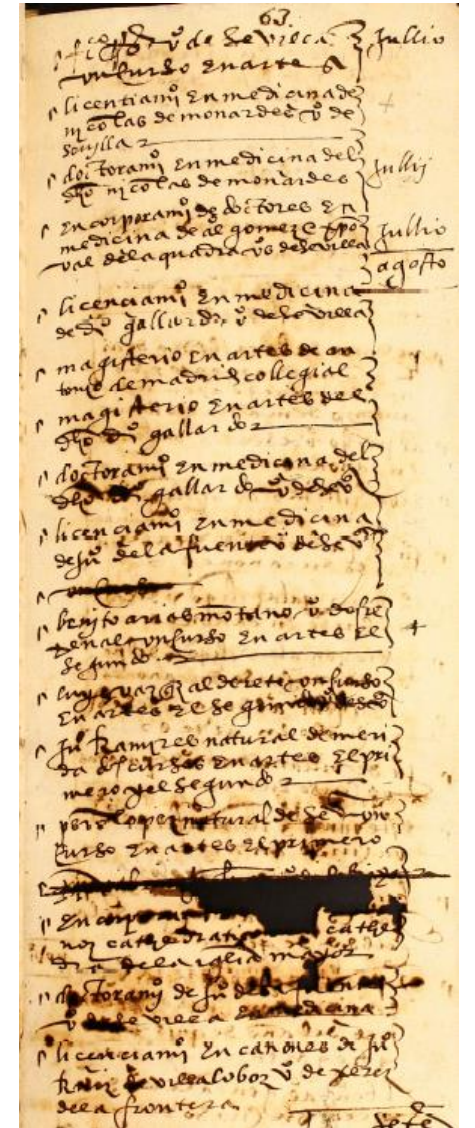 63.
vº de Sevilla Jullio
un curso en artes
licentiamº en medicina de
nicolas de monardes vº de
Sevylla
doctoramº en medicina del
dho nicolas de monardes Jullij
encorporamº de doctores en
medicina de al gomez e xpo Jullio
val de la quadra vºs de sevilla
agosto
licenciamº en medicina
de dº gallardo vº de sevilla
magisterio en artes de an
tonio de madrid collegial
magisterio en artes del
dho dº gallardo
doctoramº en medicina del
dho dº gallardo vº de seº
licenciamº en medicina
de juº de la fuente vº de seº
benito arias mõtano vº de fre
xenal un curso en artes el
segundo
alderete un curso
en artes el segundo
juº Ramires natural de meri
da dos cursos en artes el pri
mero y el segundo
lopez natural de seº un
curso en artes el primero
cathe
dra de la iglia mayor
doctoramº de juº de la fuente
vº de sevilla en medicina
licenciamº en canones de juº
Ruiz de villalobos vº de xerez
de la frontera